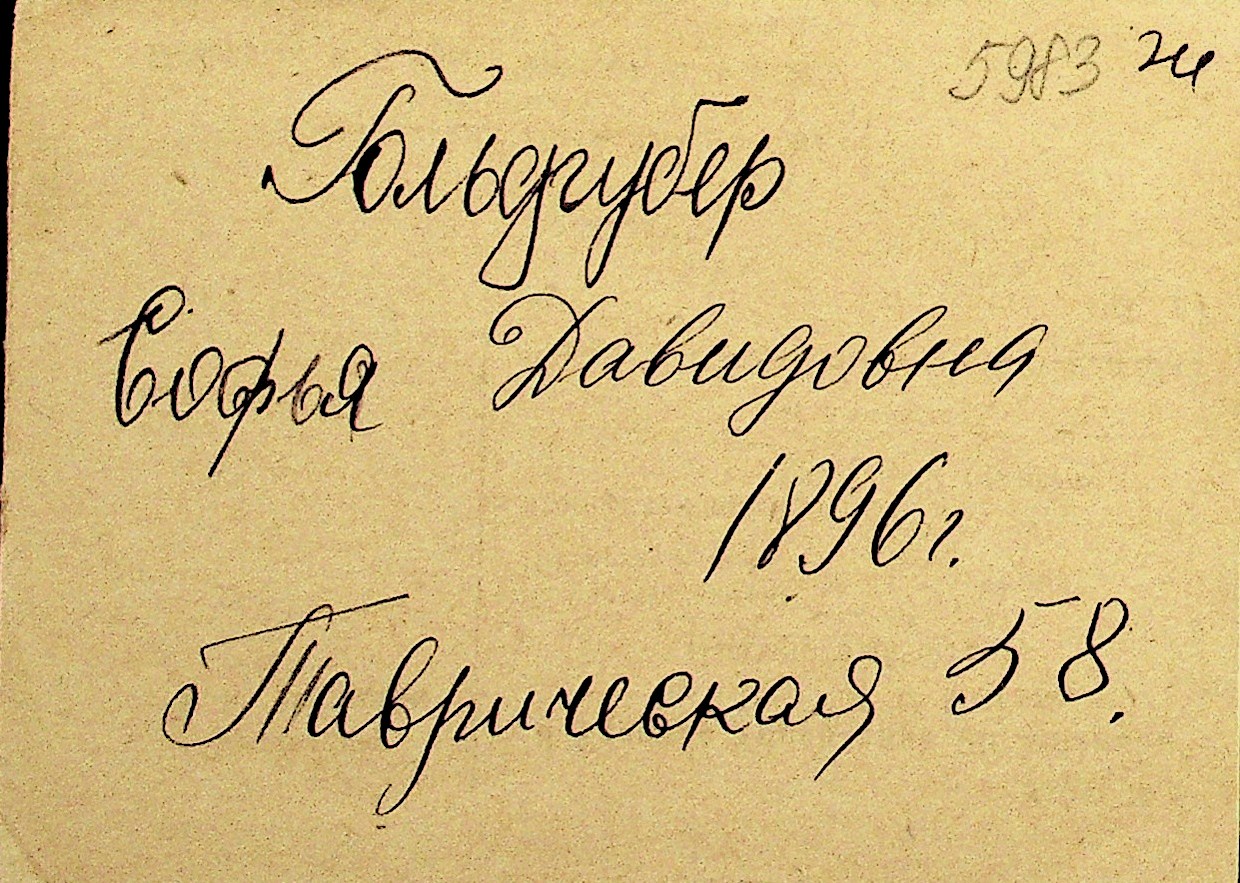 5983 ж
Гольдгубер
Софья Давидовна
1896 г.
Таврическая 58.